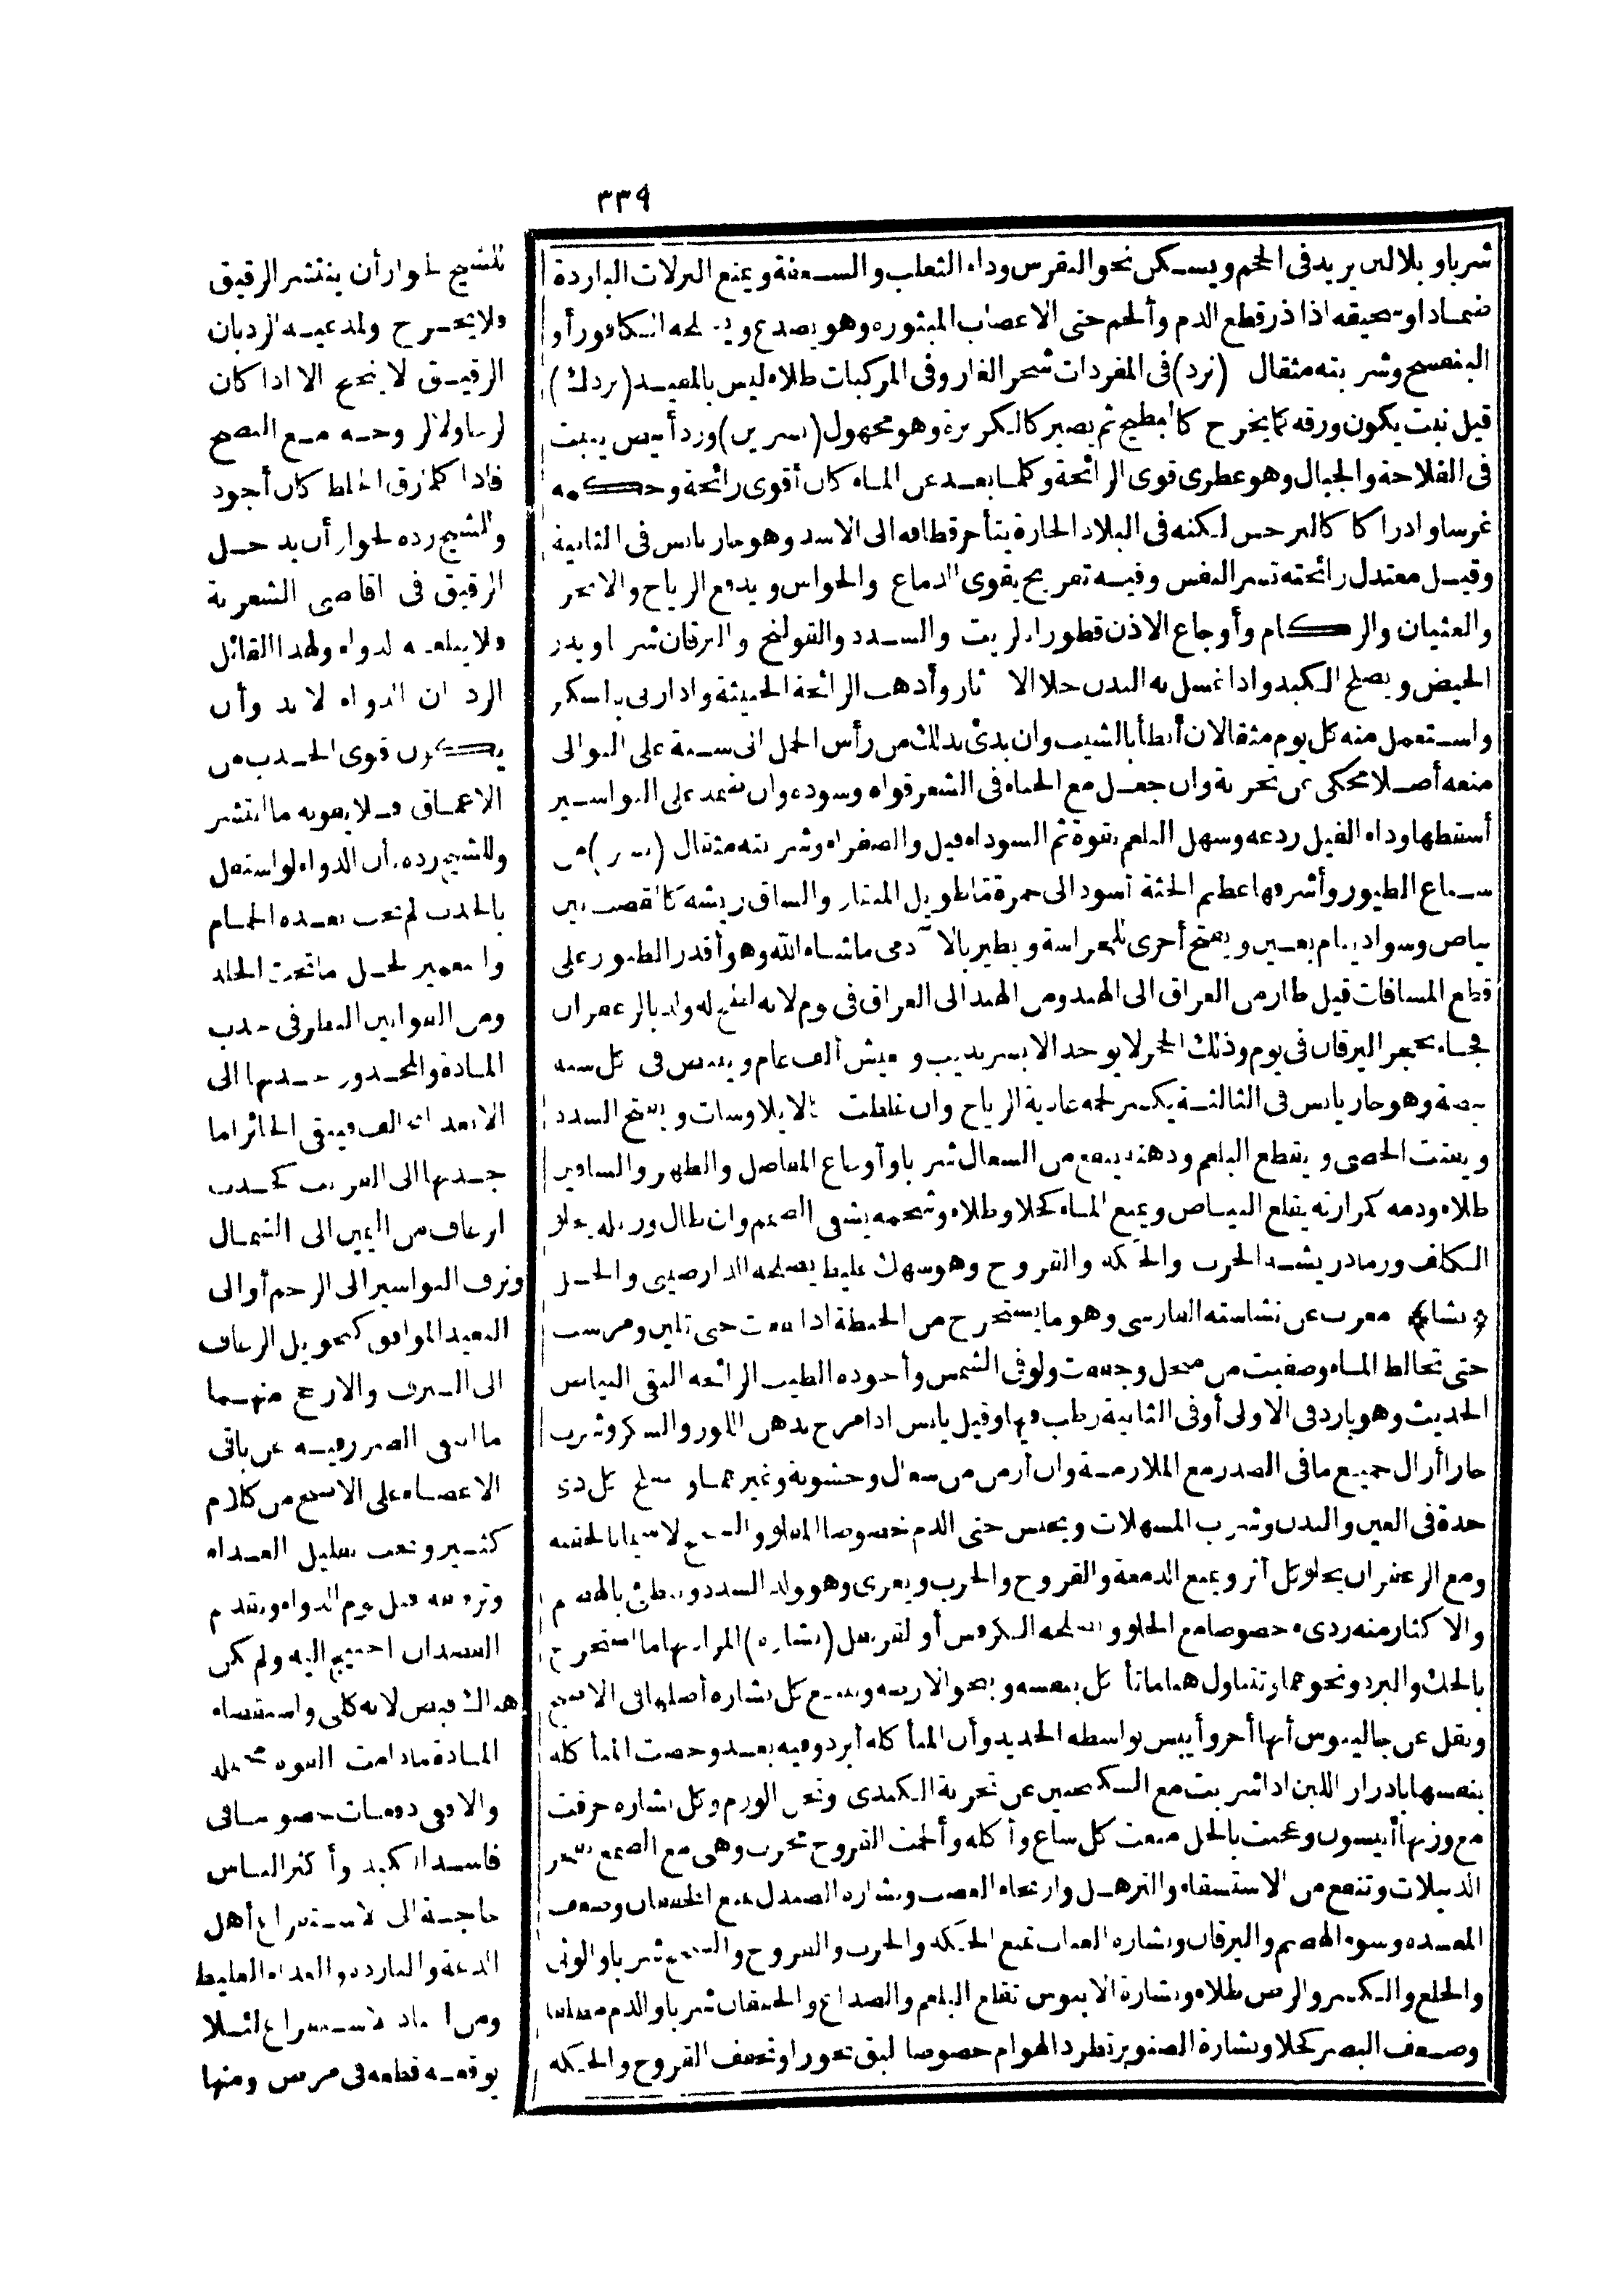 ٣٣٩
شربا وبلا لبن يزيد فى اللحم ويسكن نحو النقرس وداء الثعلب والسعفة ويمنع النزلات الباردة
ضمادا وسحيقه اذا ذر قطع الدم وألحم حتى الاعصاب المبتورة وهو يصدع ويصلحه الكافور أو
البنفسج وشربته مثقال (نرد) فى المفردات شجر الغار وفى المركبات طلاء ليس بالمفيد (نردك)
قيل نبت يكون ورقه كما يخرج كالبطيخ ثم يصير كالكزبرة وهو مجهول (نسرين) ورد أبيض ينبت
فى الفلاحة والجبال وهو عطرى قوى الرائحة وكلما بعد عن الماء كان أقوى رائحة وحكمه
غرسا وادراكا كالنرجس لكنه فى البلاد الحارة يتأخر قطافه الى الاسد وهو حار يابس فى الثانية
وقيل معتدل رائحته تسر النفس وفيه تفريح يقوى الدماغ والحواس ويدفع الرياح والابخر
والغثيان والزكام وأوجاع الاذن قطورا بزيت والسدد والقولنج واليرقان شربا ويدر
الحيض ويصلح الكبد واذا غسل به البدن جلا الآثار وأذهب الرائحة الخبيثة واذا ربى بالسكر
واستعمل منه كل يوم مثقالان أبطأ بالشيب وان بدئ بذلك من رأس الحمل الى سنة على التوالى
منعه أصلا محكى عن تجربة وان جعل مع الحناء فى الشعر قواه وسوده وان ضمد على البواسير
أسقطها وداء الفيل ردعه وسهل البلغم بقوة ثم السوداء قيل والصفراء وشربته مثقال (نسر) من
سباع الطيور وأشرفها عظيم الجثة أسود الى حمرة ما طويل المنقار والساق ريشه كالقصب بين
بياض وسواد ينام بعين ويفتح أخرى للحراسة ويطير بالآدمى ما شاء الله وهو أقدر الطيور على
قطع المسافات قيل طار من العراق الى الهند ومن الهند الى العراق فى يوم لانه لطخ له ولد بالزعفران
فجاء بحجر اليرقان فى يوم وذلك الحجر لا يوجد الا بسرنديب ويعيش ألف عام ويبيض فى كل سنه
بيضة وهو حار يابس فى الثالثة يكسر لحمه عادية الرياح وان غلظت كالايلاوسات ويفتح السدد
ويفتت الحصى ويقطع البلغم ودهنه ينفع من السعال شربا وأوجاع المفاصل والظهر والساقين
طلاء ودمه كمرارته يقلع البياض ويمنع الماء كحلا وطلاء وشحمه يشفى الصمم وان طال وزبله يجلو
الكلف ورماد ريشه الجرب والحكة والقروح وهو سهك غليظ يصلحه الدارصينى والخل
﴿نشا﴾ معرب عن نشاسته الفارسى وهو ما يستخرج من الحنطة اذا نقعت حتى تلين ومرست
حتى تخالط الماء وصفيت من منخل وجففت ولو فى الشمس وأجوده الطيب الرائحة النقى البياض
الحديث وهو بارد فى الاولى أو فى الثانية رطب فيها وقيل يابس اذا مزج بدهن اللوز والسكر وشرب
حارا أزال جميع ما فى الصدر مع الملازمة وان أزمن من سعال وخشونة وغيرهما ويصلح كل ذى
حدة فى العين والبدن وشرب المسهلات ويحبس حتى الدم خصوصا المقلو لا سيما بالحقنه
ومع الزعفران يجلو كل أثر ويمنع الدمعة والقروح والجرب ويغرى وهو يولد السدد ويبطئ بالهضم
والاكثار منه ردىء خصوصا مع الحلو ويصلحه الكرفس أو القرنفل (نشاره) المراد بها ما استخرج
بالحك والبرد ونحوهما وتتناول هنا ما تأكل بنفسه وبنحو الارضه ويتبع كل نشاره أصلها فى الاصح
ونقل عن جالينوس أنها أحر وأيبس بواسطه الحديد وأن المتأكله أبرد وفيه بعد وخصت المتأكله
بنفسها بادرار اللبن اذا شربت مع السكنجبين عن تجربة الكندى وتحل الورم وكل نشاره حرقت
مع وزنها أنيسون وعجنت بالخل منعت كل ساع وأكله وألحمت القروح تجرب وهى مع الصمغ تفجر
الدبيلات وتنفع من الاستسقاء والترهل وارتخاء العصب ونشاره الصندل تمنع الخفقان وضعف
المعده وسوء الهضم واليرقان ونشاره العناب تمنع الحكة والجرب والقروح شربا والوثى
والخلع والكسر والرض طلاء ونشارة الابنوس تقطع البلغم والصداع والخفقان شربا والدم مطلقا
وضعف البصر كحلا ونشارة الصنوبر تطرد الهوام خصوصا البق بخورا وتجفف القروح والحكة
للشيخ لجواز أن ينتشر الرقيق
ولا يخرج ولمدعيه الرد بان
الرقيق لا يخرج الا اذا كان
لزجا ولا لزوجه مع النضج
فاذا كلما رق الخلط كان أجود
وللشيخ رده لجواز أن يدخل
الرقيق فى أقاصى الشعرية
ولا يبلغه الدواء ولهذا القائل
الرد بان الدواء لا بد وأن
يكون قوى الجذب من
الاعماق فلا يفوته ما انتشر
وللشيخ رده بأن الدواء لو استعمل
بالجذب لم تجب بعده الحمام
والتعمير لحل ما تحت الجلد
ومن القوانين النظر فى جذب
المادة والمحذور جذبها الى
الابعد المخالف فيبقى الجائز اما
جذبها الى القريب كجذب
الرعاف من اليمين الى الشمال
ونزف البواسير الى الرحم أو الى
البعيد الموافق كتحويل الرعاف
الى السرف والارجح منهما
ما انتفى الضرر فيه عن باقى
الاعضاء على الاصح من كلام
كثير وتجب تقليل الغذاء
وترقيقه قبل يوم الدواء وتقدم
الفصد ان احتيج اليه ولم يكن
هناك قبض لانه كلى واستقصاء
المادة ما دامت القوة محتمله
والا ففى دفعات خصوصا فى
فاسد الكبد وأكثر الناس
حاجة الى الاستفراغ أهل
الدعة والبارده والغذاء الغليظ
ومن اعتاد الاستفراغ لئلا
يوقعه قطعه فى مرض ومنها